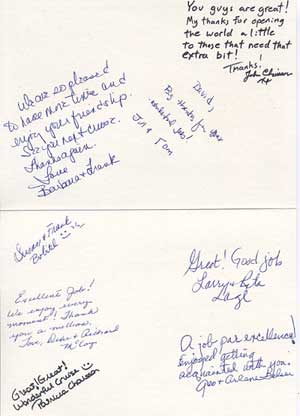 You guys are great!
My thanks for opening
the world a little
to those that need that
extra bit!
Thanks!
John
We are so pleased
to have more time and
enjoy your friendship.
Thanks again.
Love
Barbara & Frank
David,
Big thanks for your
wonderful job!
Jim &
Tom
Susan & Frank
Great! Good job
Larry & Rita
Excellent Job!
We enjoy every
moment! Thank
you a million.
Love, & Richard
McCoy
Great! Great!
Wonderful Cruise
Patricia
A job par excellence!
Enjoyed getting
acquainted with you.
Geo & Arlene